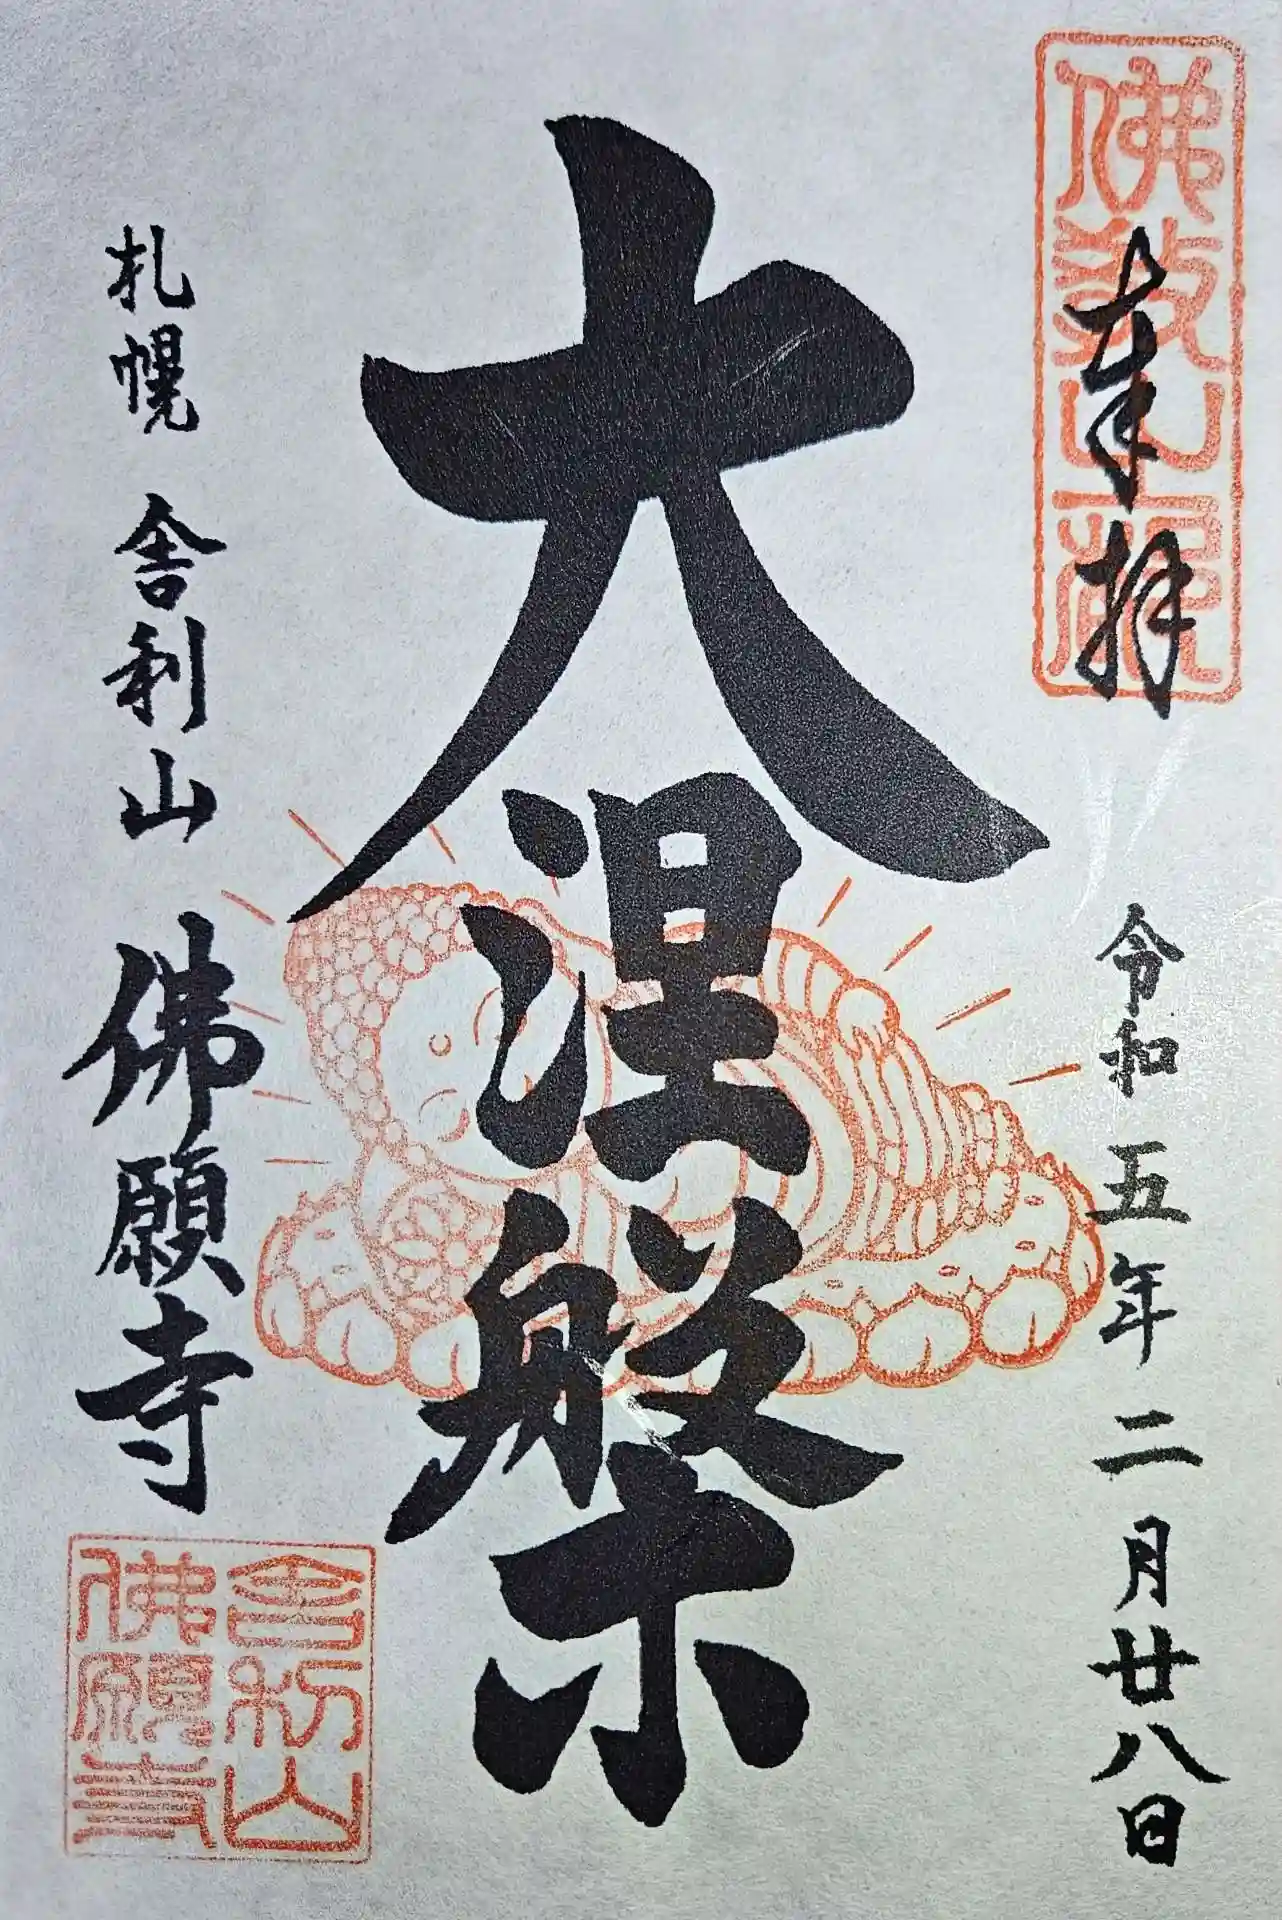 奉拝
令和五年二月廿八日
大涅槃
札幌 舎利山 佛願寺
舎利山
佛願寺